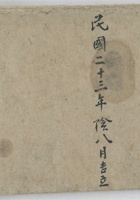 民國二十三年陰八月吉立